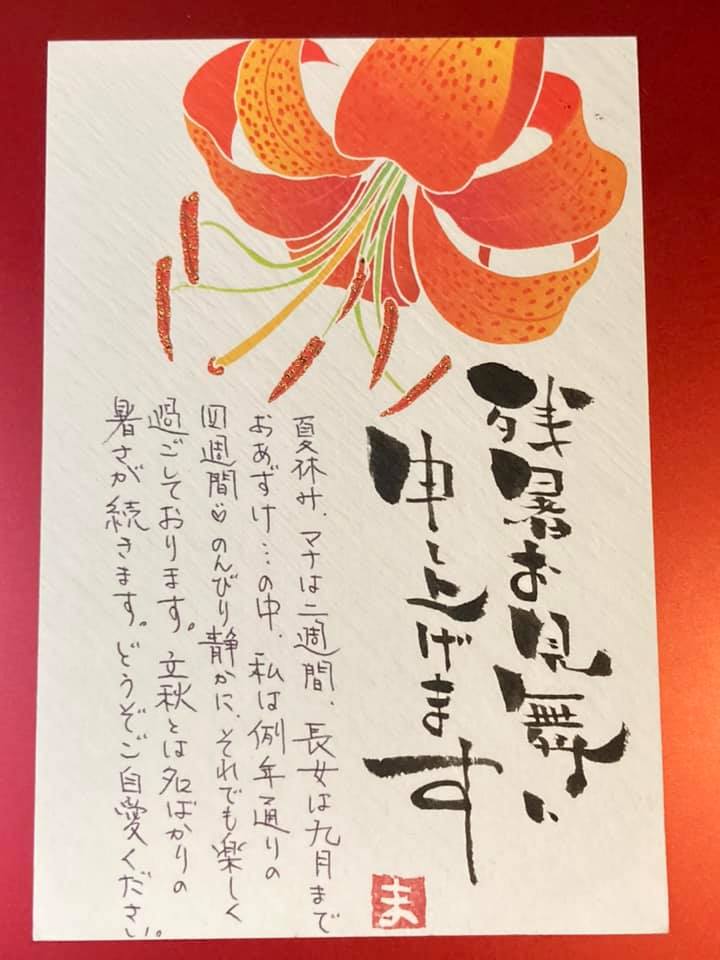 残暑お見舞い
申し上げます
ま
夏休み、マナは二週間、長女は九月まで
おあずけ…の中、私は例年通りの
四週間♡のんびり静かに、それでも楽しく
過ごしております。立秋とは名ばかりの
暑さが続きます。どうぞご自愛ください。